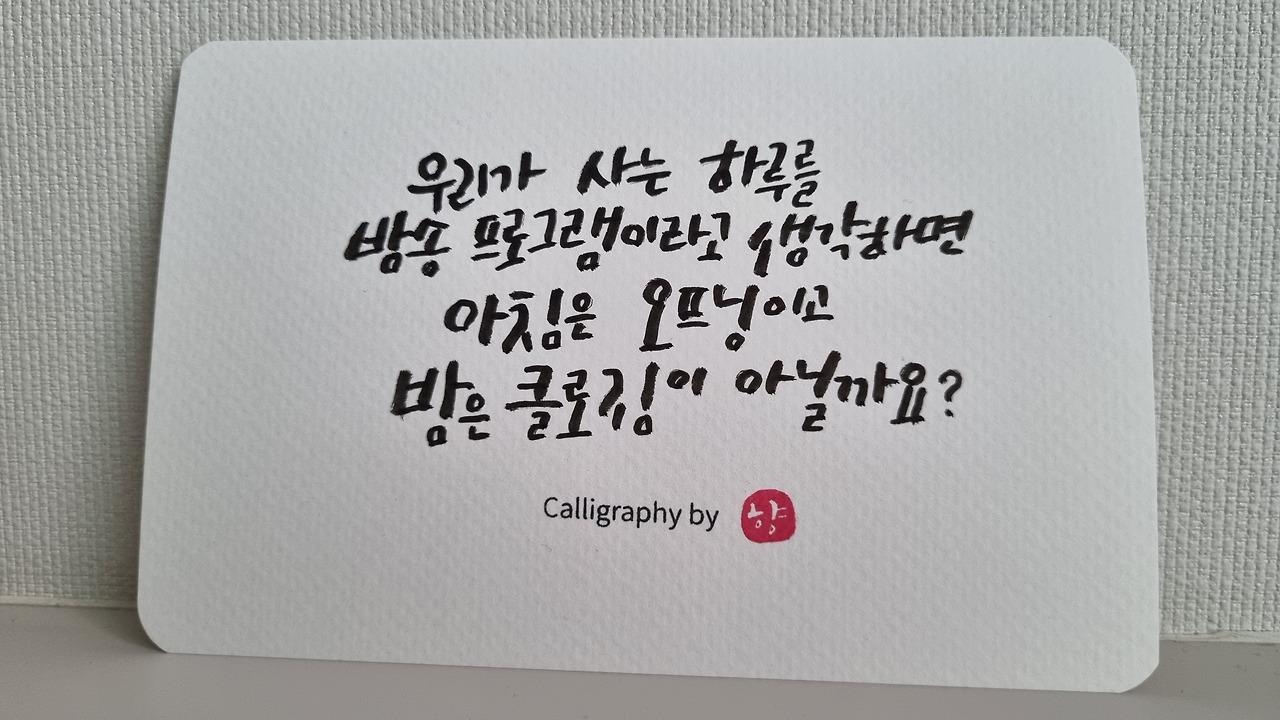 우리가 사는 하루를
방송 프로그램이라고 생각하면
아침은 오프닝이고
밤은 클로징이 아닐까요?
Calligraphy by 향